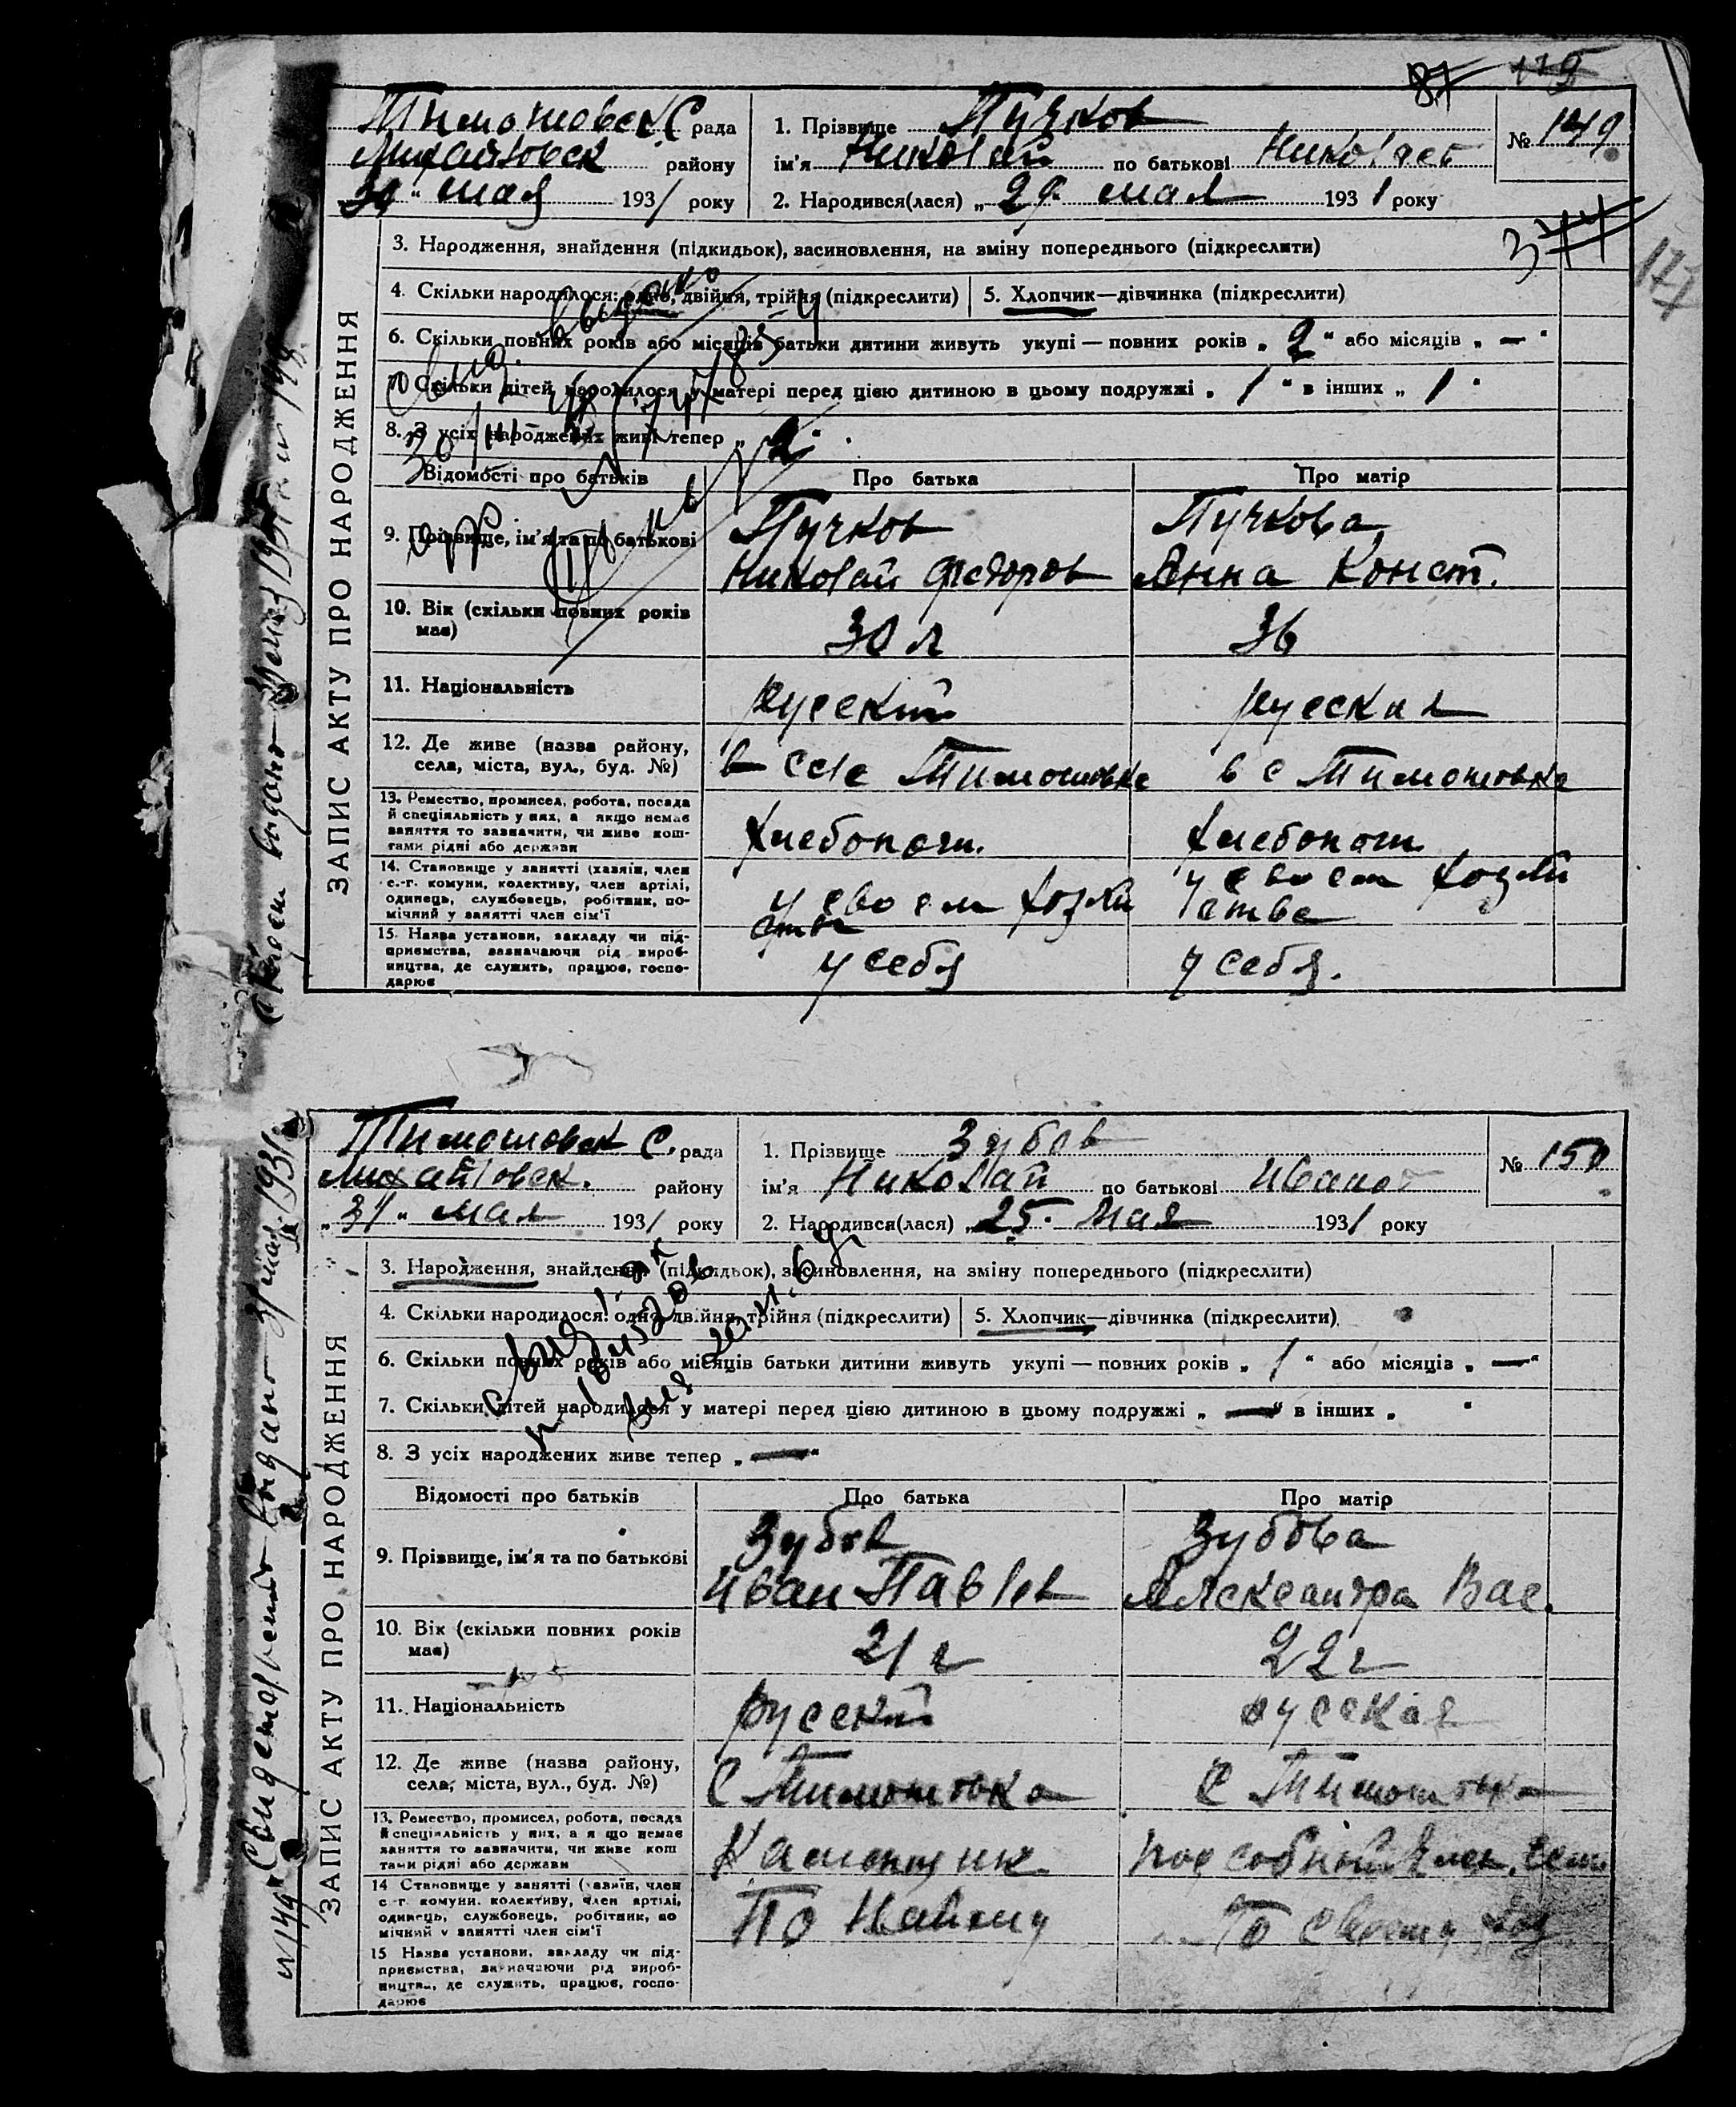 87 115
Тимошовск С рада
Михайловск району
30 " мая 1931 року
1. Прізвище Пучков
ім'я Николай по батькові Николаев
2. Народився(лася) „ 29 мая 1931 року
№ 149
377
177
ЗАПИС АКТУ ПРО НАРОДЖЕННЯ
3. Народження, знайдення (підкидьок), засиновлення, на зміну попереднього (підкреслити)
4. Скільки народилося: одно, двійня, трійня (підкреслити) 5. Хлопчик—дівчинка (підкреслити)
6. Скільки повних років або місяців батьки дитини живуть укупі — повних років „ 2 " або місяців „ — "
7. Скільки дітей народилося у матері перед цією дитиною в цьому подружжі „ 1 " в інших „ 1 "
8. З усіх народжених живе тепер „ 2 "
Відомості про батьків Про батька Про матір
9. Прізвище, ім'я та по батькові
Пучков Пучкова
Николай Федоров Анна Конст.
10. Вік (скільки повних років має)
30 л 36
11. Національність русский русская
12. Де живе (назва району, села, міста, вул., буд. №)
в селе Тимошовке в с Тимошовке
13. Ремество, промисел, робота, посада й спеціяльність у них, а якщо немає заняття то зазначити, чи живе коштами рідні або держави
Хлебопаш. Хлебопаш.
14. Становище у занятті (хазяїн, член с.-г. комуни, колективу, член артілі, одинець, службовець, робітник, помічний у занятті член сім'ї
у своем хозяйстве у своем хозяйстве
15. Назва установи, закладу чи підприємства, зазначаючи рід виробництва, де служить, працює, господарює
у себя у себя.
Тимошовск С. рада
Михайловск. району
„ 31 " мая 1931 року
1. Прізвище Зубов
ім'я Николай по батькові Иванов
2. Народився(лася) „ 25. мая 1931 року
№ 150
ЗАПИС АКТУ ПРО НАРОДЖЕННЯ
Свидетельство выдано 31 мая 1931
№ 149
3. Народження, знайдення (підкидьок), засиновлення, на зміну попереднього (підкреслити)
4. Скільки народилося: одно, двійня, трійня (підкреслити) 5. Хлопчик—дівчинка (підкреслити)
6. Скільки повних років або місяців батьки дитини живуть укупі — повних років „ 1 " або місяців „ — "
7. Скільки дітей народилося у матері перед цією дитиною в цьому подружжі „ — " в інших „ "
8. З усіх народжених живе тепер „ — "
Відомості про батьків Про батька Про матір
9. Прізвище, ім'я та по батькові
Зубов Зубова
Иван Павлов Александра Вас.
10. Вік (скільки повних років має)
21 г 22 г
11. Національність русский русская
12. Де живе (назва району, села, міста, вул., буд. №)
С Тимошовка С Тимошовка
13. Ремество, промисел, робота, посада й спеціяльність у них, а якщо немає заняття то зазначити, чи живе коштами рідні або держави
Каменщик пособный член. сем.
14 Становище у занятті (хазяїн, член с-г. комуни, колективу, член артілі, одинець, службовець, робітник, помічний у занятті член сім'ї
По Найму По своему хоз
15 Назва установи, закладу чи підприємства, зазначаючи рід виробництва, де служить, працює, господарює